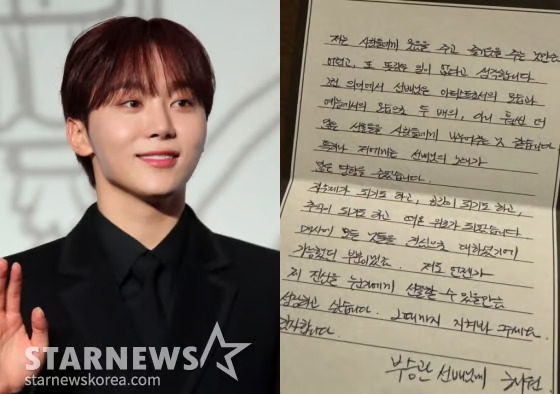 STARNEWS
starnewskorea.com
저는 사람들에게 웃음을 주고 즐거움을 주는 것만큼
어렵고, 또 뜻깊은 일이 없다고 생각합니다
그런 의미에서 선배님은 아티스트로서의 모습과
예능에서의 모습으로 두 배의, 아니 훨씬 더
많은 선물들을 사람들에게 나눠주는 것 같습니다.
특히나 저에게는 선배님의 노래가
많은 영향을 주었습니다.
되기도 하고, 공감이 되기도 하고,
추억이 되기도 하고 때론 위로가 되었습니다
매사에 모든 것들을 진심으로 대하셨기에
가능했던 부분이겠죠. 저도 언젠가
제 진심을 누군가에게 선물할 수 있을만큼
성장하고 싶습니다. 그때까지 지켜봐 주세요.
감사합니다.
부승관 선배님께